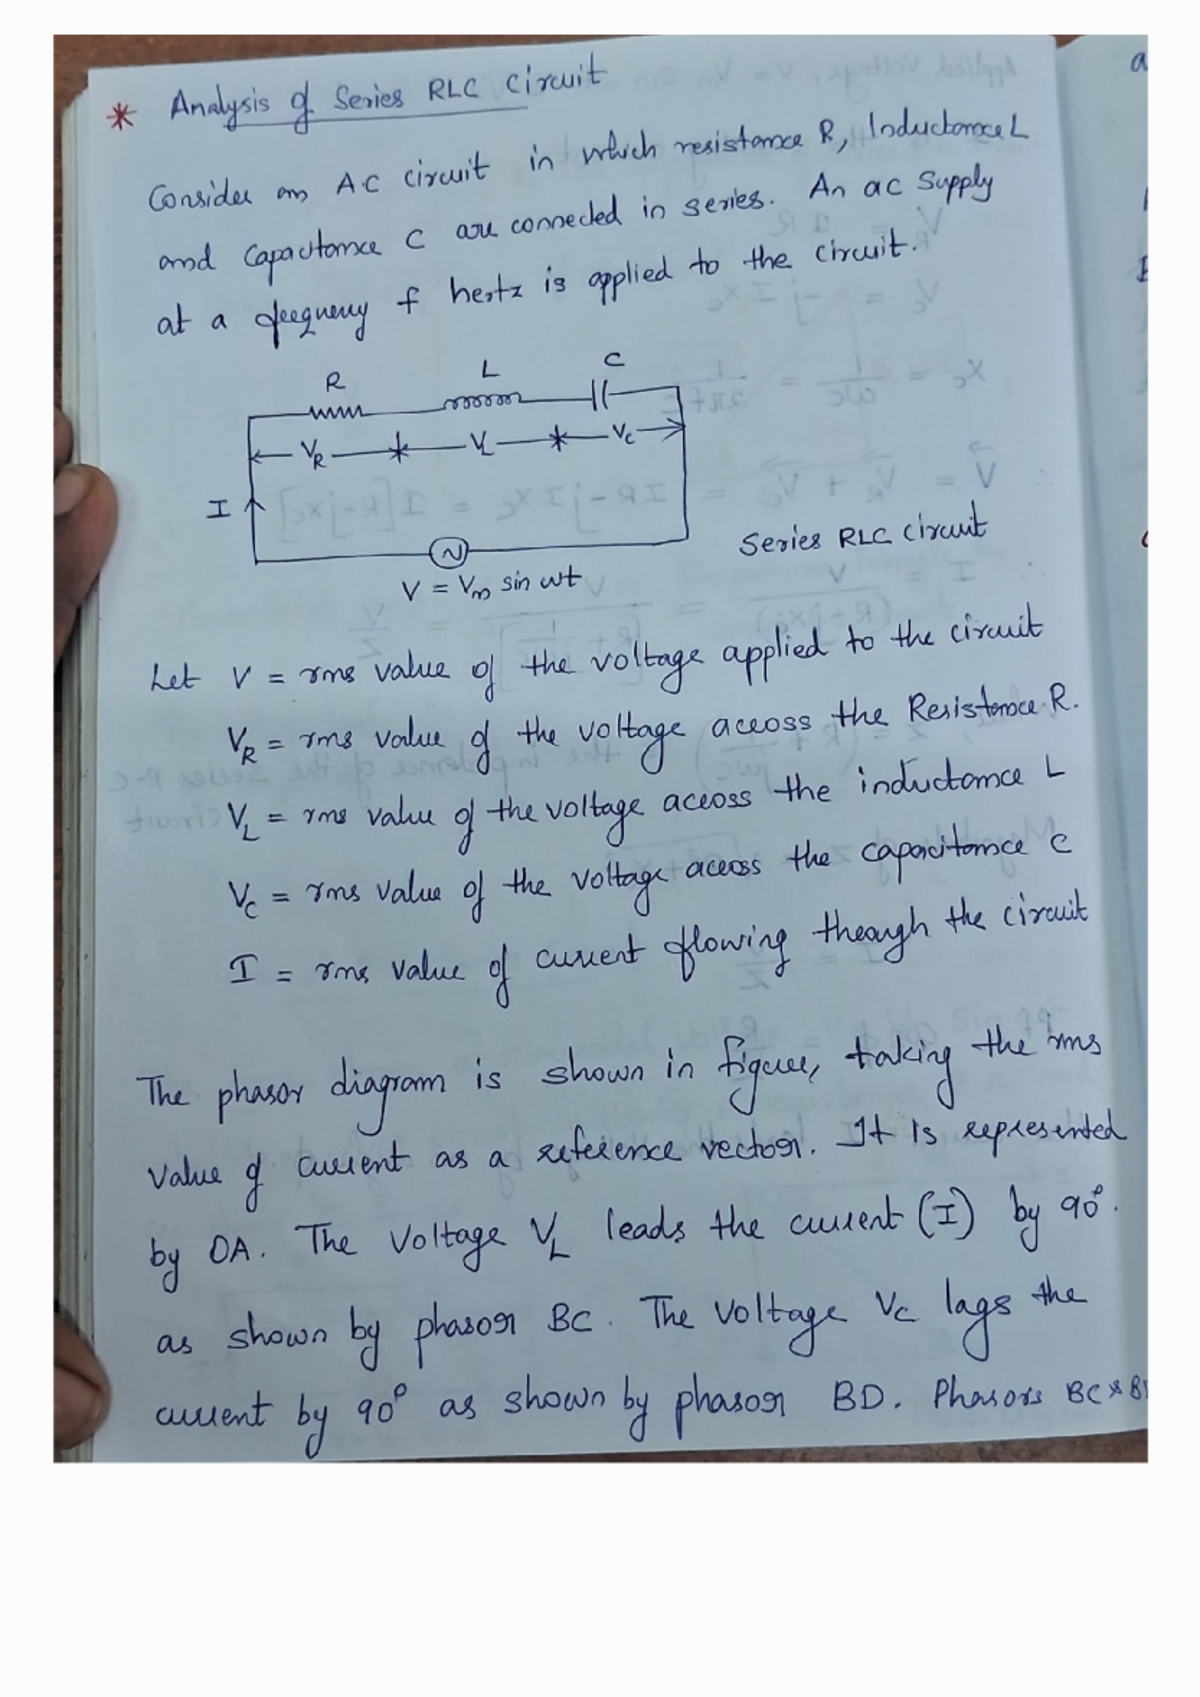 * Analysis of Series RLC Circuit
Consider an A.C circuit in which resistance R, Inductance L
and Capacitance C are connected in series. An ac Supply
at a frequency f hertz is applied to the circuit.
R L C
VR VL Vc
I
V = Vm sin wt
Series RLC circuit
Let V = rms value of the voltage applied to the circuit
VR = rms value of the voltage across the Resistance R.
VL = rms value of the voltage across the inductance L
Vc = rms value of the voltage across the capacitance C
I = rms value of current flowing through the circuit
The phasor diagram is shown in figure, taking the rms
value of current as a reference vector. It is represented
by OA. The Voltage VL leads the current (I) by 90°.
as shown by phasor BC. The voltage Vc lags the
current by 90° as shown by phasor BD. Phasors BC &